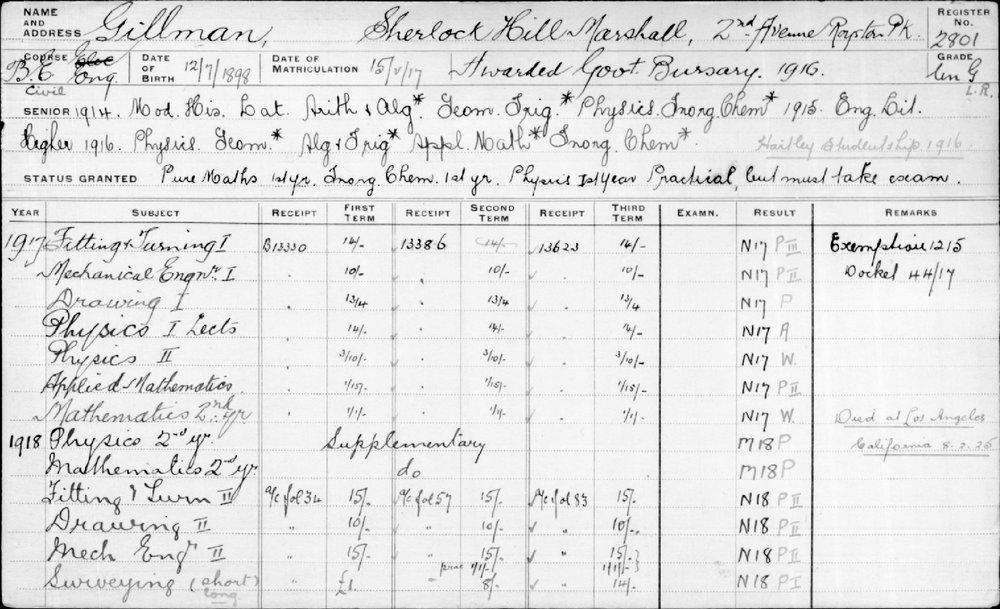 NAME AND ADDRESS Gillman, Sherlock Hill Marshall, 2nd Avenue Royston Pk. REGISTER No. 2801
COURSE B.E Elec Eng Civil DATE OF BIRTH 12/7/1898 DATE OF MATRICULATION 15/V/17 Awarded Govt Bursary. 1916. GRADE Un G L.R.
SENIOR 1914. Mod. His. Lat. Arith & Alg* Geom. Trig.* Physics. Inorg Chem* 1915. Eng. Lit.
Higher 1916. Physics. Geom.* Alg & Trig* Appl. Math* Inorg. Chem* Hartley Studentship 1916.
STATUS GRANTED Pure Maths 1st yr. Inorg. Chem. 1st yr. Physics 1st Year Practical, but must take exam.
YEAR SUBJECT RECEIPT FIRST TERM RECEIPT SECOND TERM RECEIPT THIRD TERM EXAMN. RESULT REMARKS
1917 Fitting & Turning I B13330 14/- 13386 14/- 13623 14/- N17 P III Exemption 1215
Mechanical Engnr. I " 10/- " 10/- " 10/- N17 P II Docket 44/17
Drawing I " 13/4 " 13/4 " 13/4 N17 P
Physics I Lects " 14/- " 14/- " 14/- N17 A
Physics II " 3/10/- " 3/10/- " 3/10/- N17 W.
Applied Mathematics. " 1/15/- " 1/15/- " 1/15/- N17 P II
Mathematics 2nd yr " 1/1/- " 1/1/- " 1/1/- N17 W. Died at Los Angeles
1918 Physics 2nd yr. Supplementary M18 P California 8.2.25
Mathematics 2nd yr. do M18 P
Fitting & Turn II a/c fol 34 15/- a/c fol 57 15/- a/c fol 83 15/- N18 P II
Drawing II " 10/- " 10/- " 10/- N18 P II
Mech Engr II " 15/- " 15/- " 15/- N18 P II
prac 1/1/- 1/1/-
Surveying (short) long " £1. 8/- " 14/- N18 P I